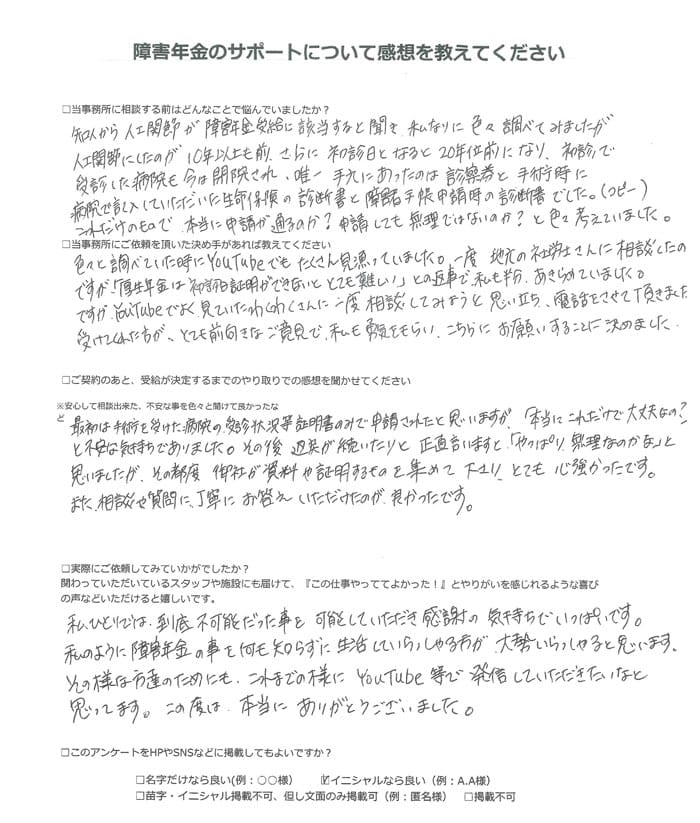 障害年金のサポートについて感想を教えてください
□当事務所に相談する前はどんなことで悩んでいましたか？
知人から人工関節が障害年金受給に該当すると聞き、私なりに色々調べてみましたが
人工関節にしたのが10年以上も前、さらに初診日となると20年位前になり、初診で
受診した病院も今は閉院され、唯一手元にあったのは診察券と手術時に
病院で記入していただいた生命保険の診断書と障害者手帳申請時の診断書でした。(コピー)
これだけのもので本当に申請が通るのか？申請しても無理ではないのか？と色々考えていました。
□当事務所にご依頼を頂いた決め手があれば教えてください
色々と調べていた時にYouTubeでもたくさん見漁っていました。一度地元の社労士さんに相談したの
ですが「厚生年金は初診日証明ができないととても難しい」との返事で、私も半分あきらめていました。
ですが、YouTubeでよく見ていたわくわくさんに一度相談してみようと思い立ち、電話をさせて頂きました
受けてくれた方が、とても前向きなご意見で、私も勇気をもらい、こちらにお願いすることに決めました。
□ご契約のあと、受給が決定するまでのやり取りでの感想を聞かせてください
※安心して相談出来た、不安な事を色々と聞けて良かったな
ど
最初は手術を受けた病院の受診状況等証明書のみで申請されたと思いますが、「本当にこれだけで大丈夫なの？」
と不安な気持ちでありました。その後返戻が続いたりと正直言いますと「やっぱり無理なのかな」と
思いましたが、その都度御社が資料や証明するものを集めて下さり、とても心強かったです。
また、相談や質問に、丁寧にお答えいただけたのが、良かったです。
□実際にご依頼してみていかがでしたか？
関わっていただいているスタッフや施設にも届けて、『この仕事やっててよかった！』とやりがいを感じれるような喜び
の声などいただけると嬉しいです。
私ひとりでは、到底不可能だった事を可能していただき感謝の気持ちでいっぱいです。
私のように障害年金の事を何も知らずに生活していらっしゃる方が大勢いらっしゃると思います。
その様な方達のためにも、これまでの様にYouTube等で発信していただきたいなと
思ってます。この度は、本当にありがとうございました。
□このアンケートをHPやSNSなどに掲載してもよいですか？
□名字だけなら良い(例：〇〇様) ☑イニシャルなら良い（例：A.A様）
□苗字・イニシャル掲載不可、但し文面のみ掲載可（例：匿名様） □掲載不可